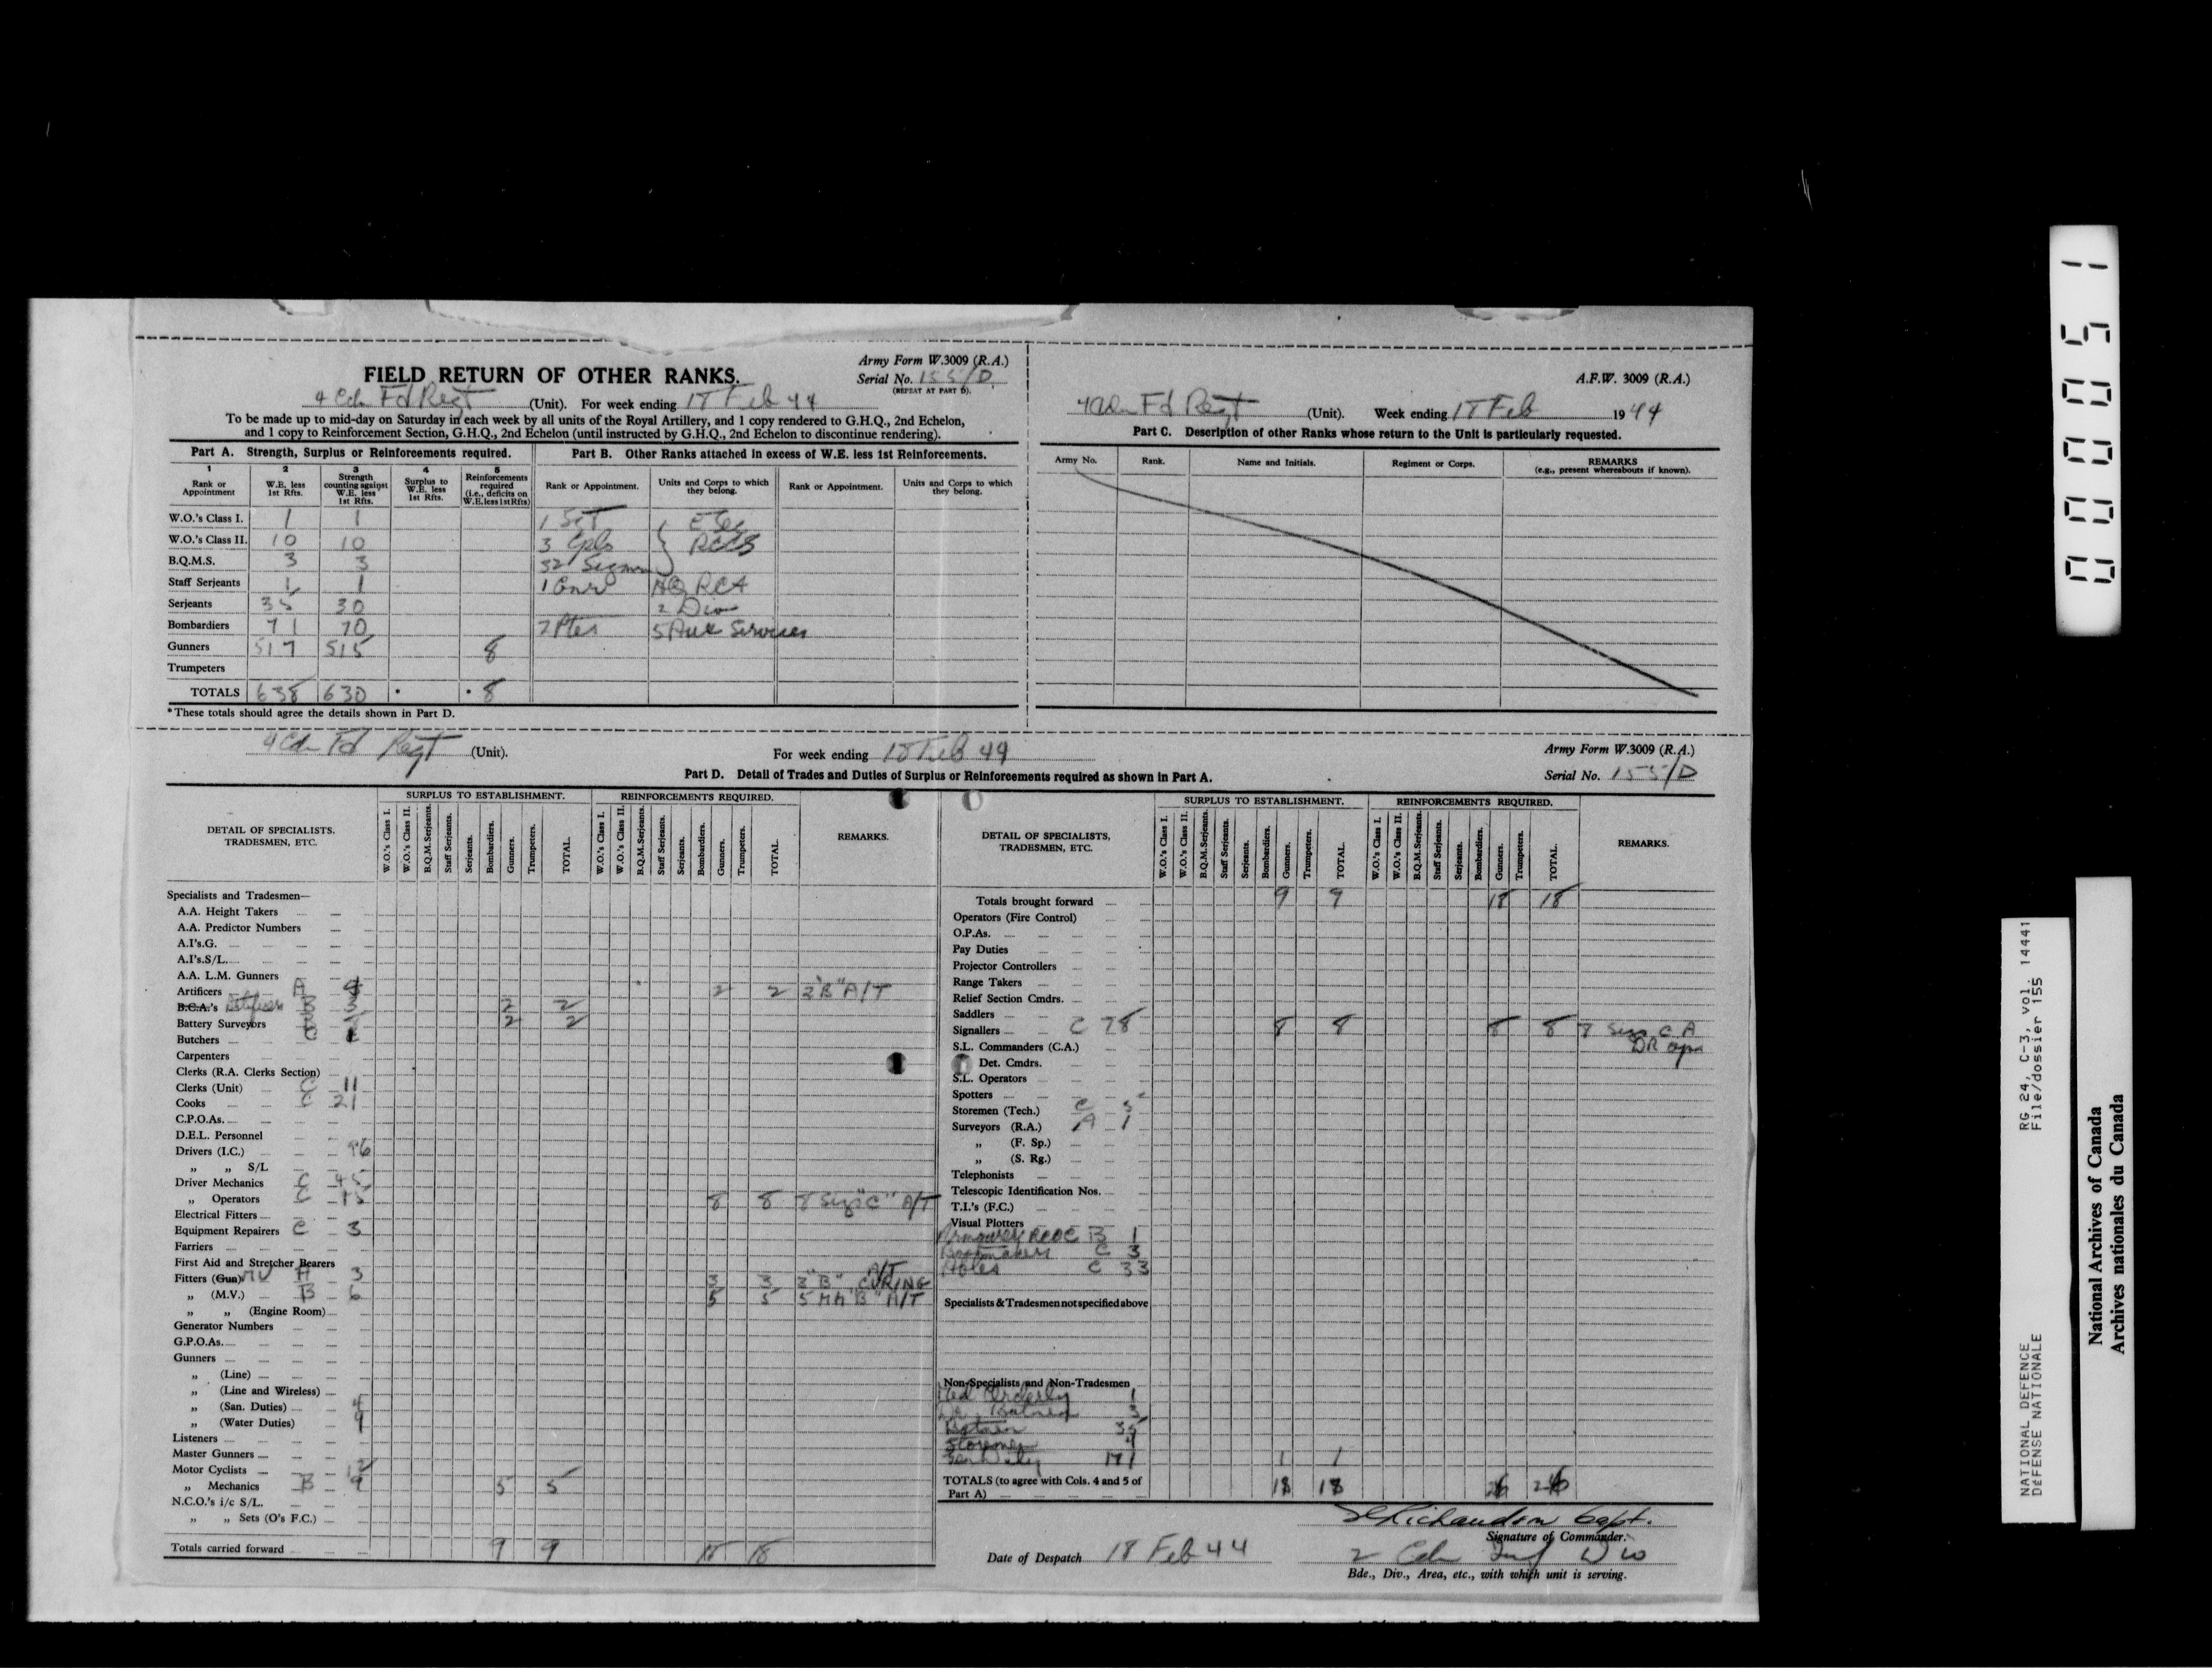 FIELD RETURN OF OTHER RANKS.
Army Form W.3009 (R.A.)
Serial No. 155/D
(REPEAT AT PART D).
4 Cdn Fd Regt (Unit). For week ending 18 Feb 44
To be made up to mid-day on Saturday in each week by all units of the Royal Artillery, and 1 copy rendered to G.H.Q., 2nd Echelon,
and 1 copy to Reinforcement Section, G.H.Q., 2nd Echelon (until instructed by G.H.Q., 2nd Echelon to discontinue rendering).
Part A. Strength, Surplus or Reinforcements required.
Part B. Other Ranks attached in excess of W.E. less 1st Reinforcements.
1 Rank or Appointment
2 W.E. less 1st Rfts.
3 Strength counting against W.E. less 1st Rfts.
4 Surplus to W.E. less 1st Rfts.
5 Reinforcements required (i.e., deficits on W.E. less 1st Rfts)
Rank or Appointment.
Units and Corps to which they belong.
Rank or Appointment.
Units and Corps to which they belong.
W.O.'s Class I. 1 1 1 Sgt E Sec
W.O.'s Class II. 10 10 3 Cpls RCCS
B.Q.M.S. 3 3 32 Sigmn
Staff Serjeants 1 1 1 Gnr HQ RCA
Serjeants 35 30 2 Div
Bombardiers 71 70 2 Ptes 5 Aux Services
Gunners 517 515 8
Trumpeters
TOTALS 638 630 * * 8
* These totals should agree the details shown in Part D.
A.F.W. 3009 (R.A.)
4 Cdn Fd Regt (Unit). Week ending 18 Feb 1944
Part C. Description of other Ranks whose return to the Unit is particularly requested.
Army No. Rank. Name and Initials. Regiment or Corps. REMARKS
(e.g., present whereabouts if known).
4 Cdn Fd Regt (Unit). For week ending 18 Feb 44
Army Form W.3009 (R.A.)
Serial No. 155/D
Part D. Detail of Trades and Duties of Surplus or Reinforcements required as shown in Part A.
DETAIL OF SPECIALISTS, TRADESMEN, ETC.
SURPLUS TO ESTABLISHMENT.
W.O.'s Class I. W.O.'s Class II. B.Q.M.Serjeants. Staff Serjeants. Serjeants. Bombardiers. Gunners. Trumpeters. TOTAL.
REINFORCEMENTS REQUIRED.
W.O.'s Class I. W.O.'s Class II. B.Q.M.Serjeants. Staff Serjeants. Serjeants. Bombardiers. Gunners. Trumpeters. TOTAL.
REMARKS.
Specialists and Tradesmen—
A.A. Height Takers
A.A. Predictor Numbers
A.I's.G.
A.I's.S/L.
A.A. L.M. Gunners
Artificers A 2 2 2 "B" A/T
B.C.A.'s B 3 2 2
Battery Surveyors 2 2
Butchers C
Carpenters
Clerks (R.A. Clerks Section)
Clerks (Unit) C 11
Cooks C 21
C.P.O.As.
D.E.L. Personnel
Drivers (I.C.) 96
„ „ S/L
Driver Mechanics C 45
„ Operators C 15 8 8 8 Sigs "C" A/T
Electrical Fitters
Equipment Repairers C 3
Farriers
First Aid and Stretcher Bearers
Fitters (Gun) MV A 3 3 3 3 "B" A/T
„ (M.V.) B 6 5 5 5 MM "B" A/T
„ „ (Engine Room)
Generator Numbers
G.P.O.As.
Gunners
„ (Line)
„ (Line and Wireless)
„ (San. Duties) 4
„ (Water Duties) 9
Listeners
Master Gunners
Motor Cyclists 12
„ Mechanics B 9 5 5
N.C.O.'s i/c S/L.
„ „ Sets (O's F.C.)
Totals carried forward 9 9 18 18
DETAIL OF SPECIALISTS, TRADESMEN, ETC.
SURPLUS TO ESTABLISHMENT.
W.O.'s Class I. W.O.'s Class II. B.Q.M.Serjeants. Staff Serjeants. Serjeants. Bombardiers. Gunners. Trumpeters. TOTAL.
REINFORCEMENTS REQUIRED.
W.O.'s Class I. W.O.'s Class II. B.Q.M.Serjeants. Staff Serjeants. Serjeants. Bombardiers. Gunners. Trumpeters. TOTAL.
REMARKS.
Totals brought forward 9 9 18 18
Operators (Fire Control)
O.P.As.
Pay Duties
Projector Controllers
Range Takers
Relief Section Cmdrs.
Saddlers
Signallers C 78 8 8 8 8
S.L. Commanders (C.A.)
Det. Cmdrs.
S.L. Operators
Spotters
Storemen (Tech.) C 5
Surveyors (R.A.) A 1
„ (F. Sp.)
„ (S. Rg.)
Telephonists
Telescopic Identification Nos.
T.I.'s (F.C.)
Visual Plotters
Armourer RCOC B 1
Bootmakers C 3
C 33
Specialists & Tradesmen not specified above
Non-Specialists and Non-Tradesmen
Med Orderly 1
Batmen 35
Storemen 4
171 1 1
TOTALS (to agree with Cols. 4 and 5 of
Part A) 18 18 26 26
Richardson Capt.
Signature of Commander.
Date of Despatch 18 Feb 44
2 Cdn Inf Div
Bde., Div., Area, etc., with which unit is serving.
000051
NATIONAL DEFENCE RG 24, C-3, vol. 14441
DÉFENSE NATIONALE File/dossier 155
National Archives of Canada
Archives nationales du Canada